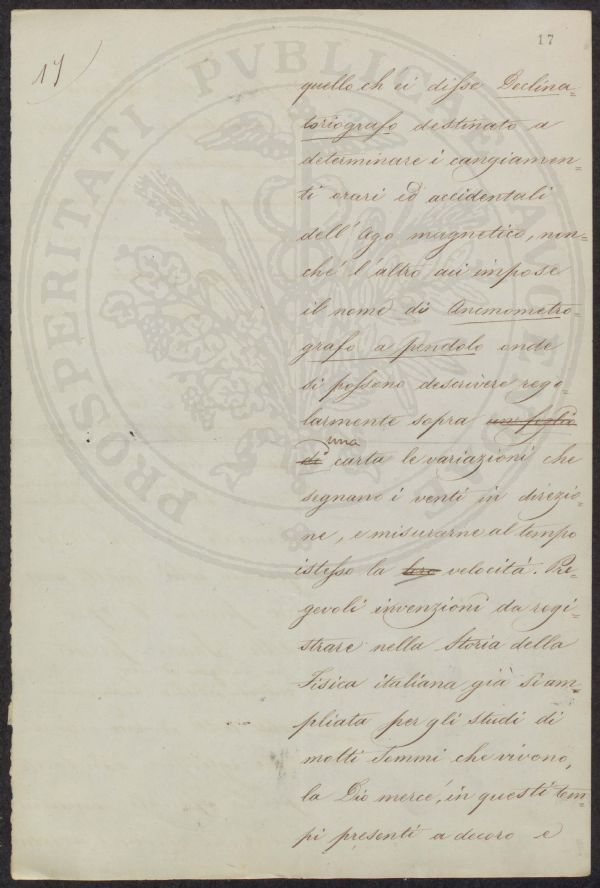 17
17
quello ch'ei disse Declina=
toriografo destinato a
determinare i cangiamen=
ti orari ed accidentali
dell'Ago magnetico, non=
ché l'altro cui impose
il nome di Anemometro=
grafo a pendolo onde
si possono descrivere rego=
larmente sopra un foglio
di una carta le variazioni che
segnano i venti in direzio=
ne, e misurarne al tempo
istesso la loro velocità. Pre=
gevoli invenzioni da regi=
strare nella Storia della
Fisica italiana già sì am=
pliata per gli studi di
molti Sommi che vivono,
la Dio mercé, in questi tem=
pi presenti a decoro e
PROSPERITATI PVBLICAE AVG